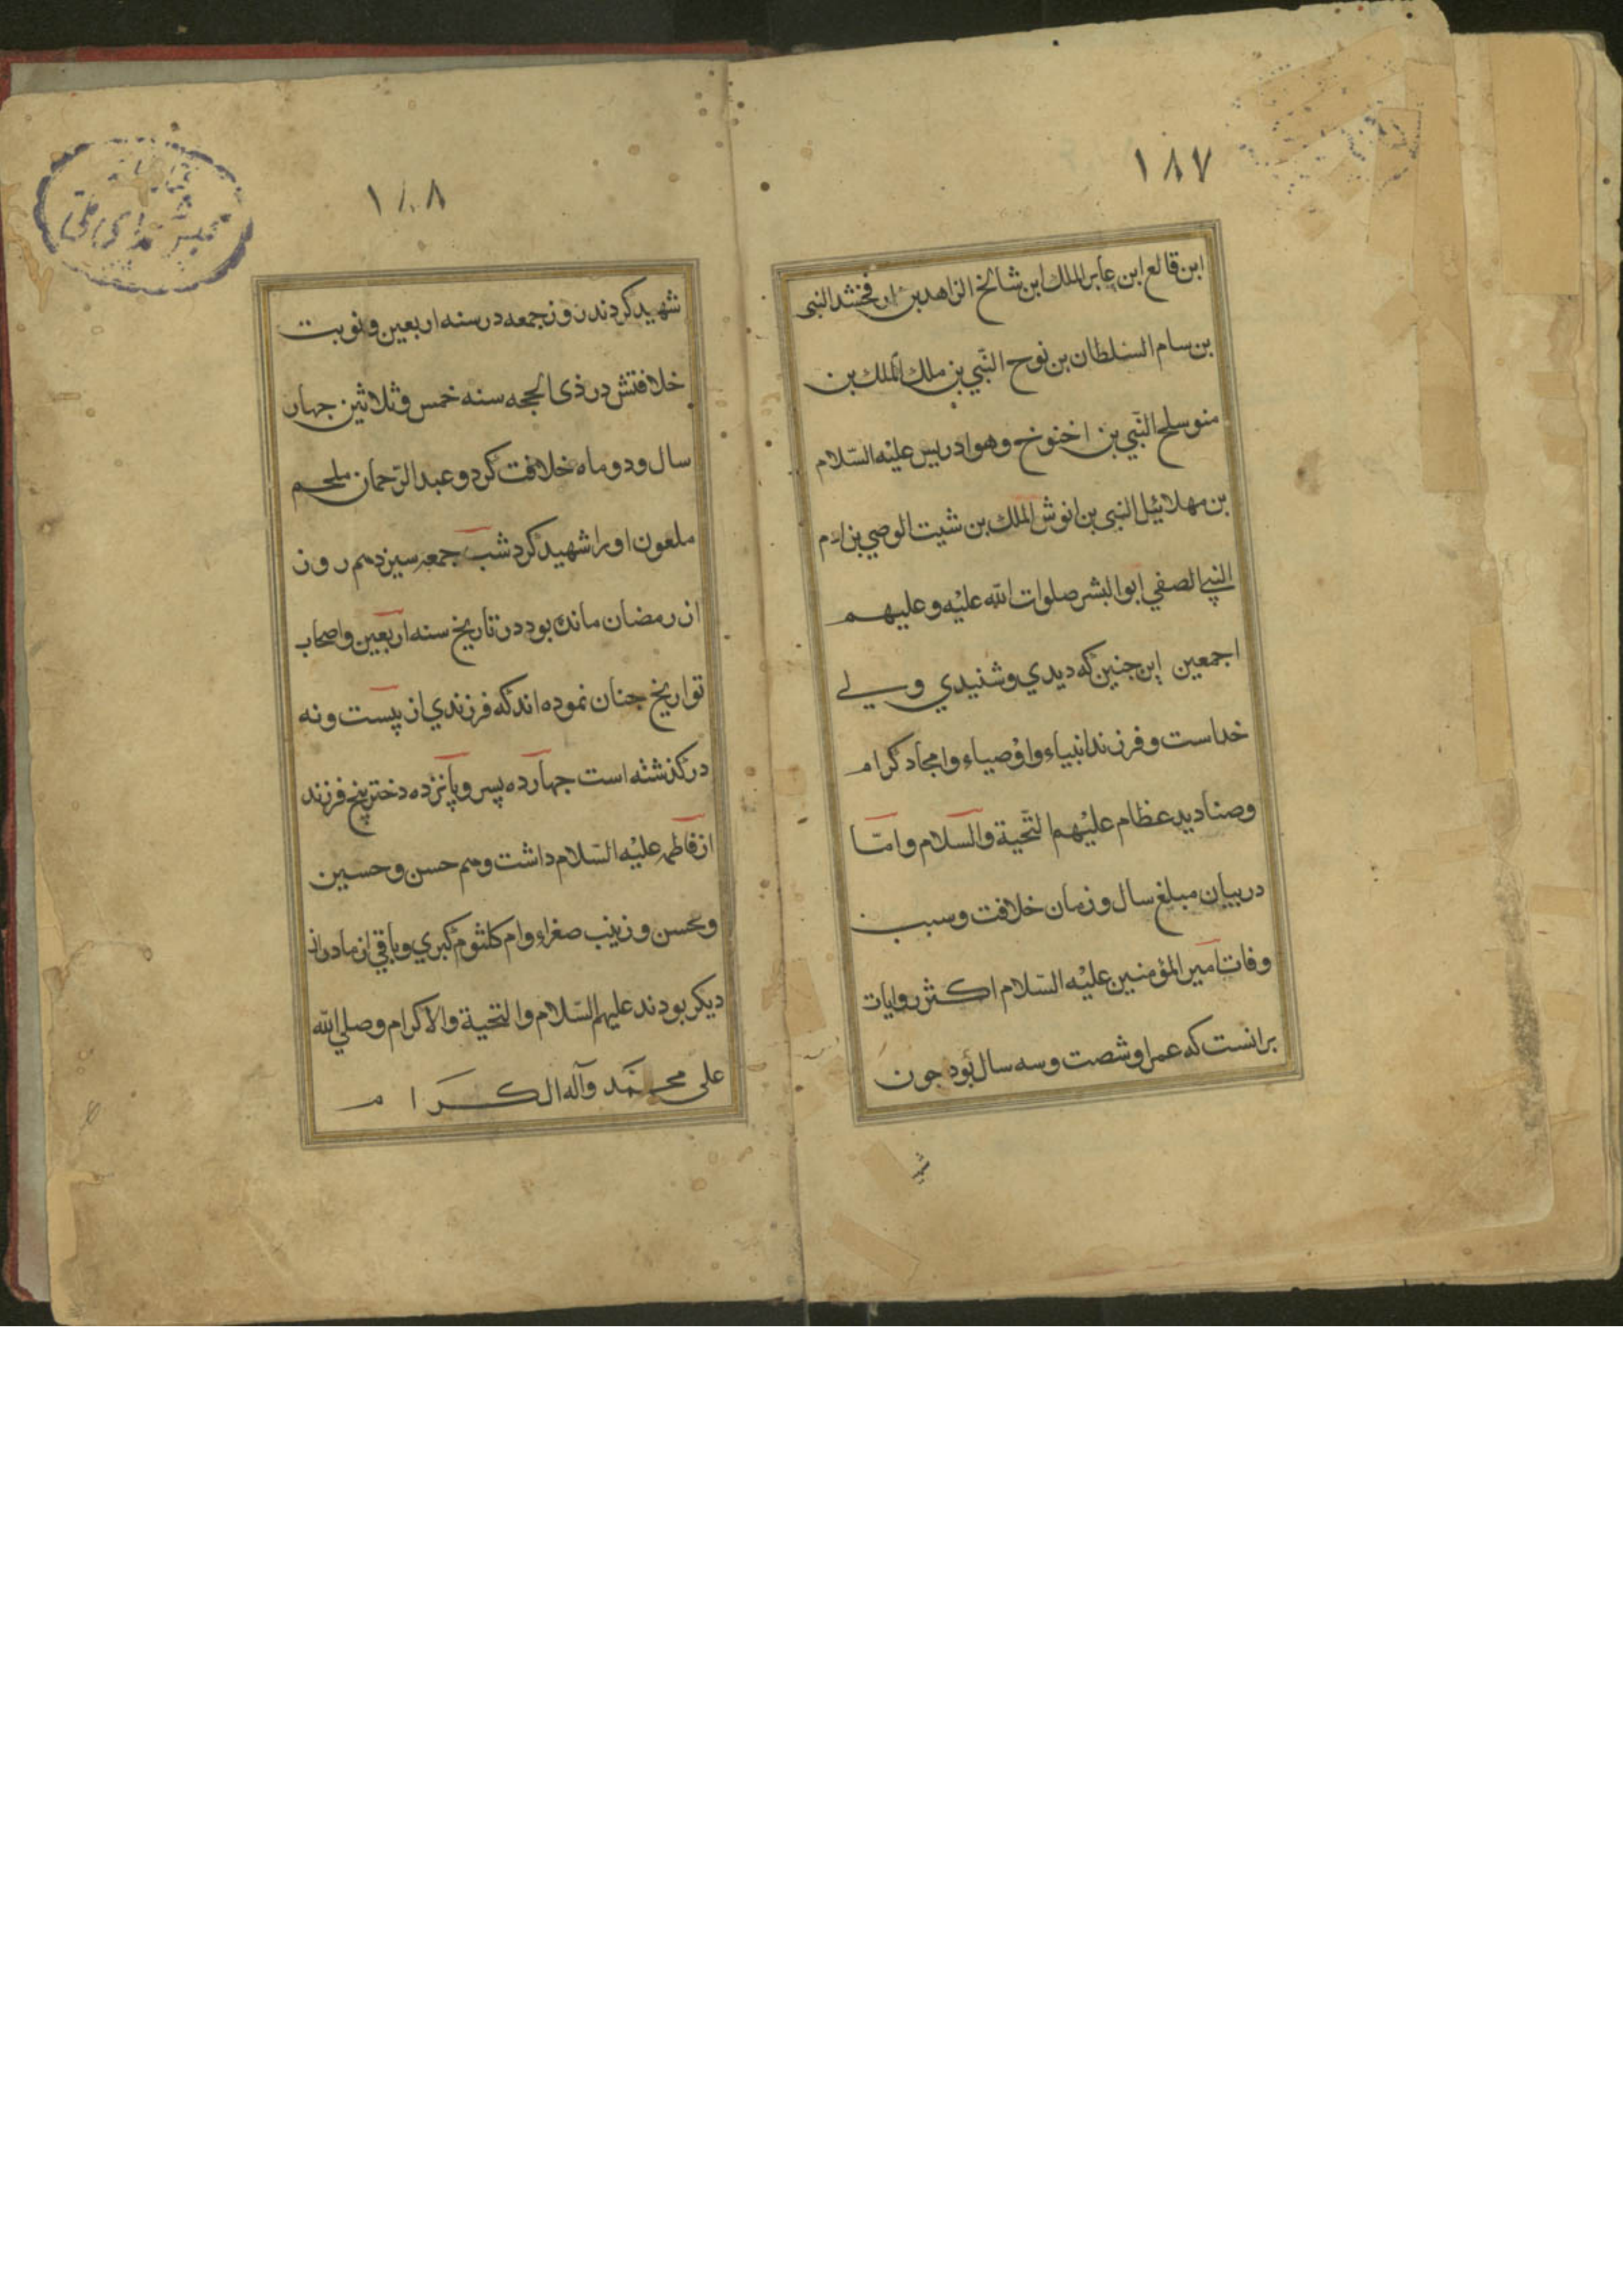 ۱۸۷
ابن قالع ابن عابر الملك ابن شالخ الزاهد بن ارفخشد النبی
بن سام السلطان بن نوح النّبي بن ملك الملك بن
منوسلح النّبي بن اخنوخ وهو ادریس علیْه السّلام
بن مهلائیل النبی بن انوش الملك بن شیت الوصي بن ادم
النبي الصفي ابوالبشر صلوات اللّه علیْه و علیهم
اجمعین این جنین که دیدي و شنیدي ولي
خداست و فرزند انبیاء و اوْصیاء و امجاد کرام
و صنادید عظام علیْهم التّحیة والسلام و امّا
در بیان مبلغ سال و زمان خلافت و سبب
وفات امیر المؤمنین علیْه السّلام اکثر روایات
برانست که عمر او شصت و سه سال بُود جون
شهید
۱۸۸
شهید کردند روز جمعه در سنه اربعین و نوبت
خلافتش در ذی الحجه سنه خمس و ثلاثین جهار
سال و دو ماه خلافت کرد و عبد الرّحمان ملجم
ملعون او را شهید کرد شب جمعه سیزدهم روز
از رمضان مانده بود در تاریخ سنه اربعین و اصحاب
تواریخ جنان نموده اند که فرزندي از بیست و نه
در کذشته است جهارده پسر و پانزده دختر پنج فرزند
از فاطمه علیْه السّلام داشت و هم حسن و حسین
و محسن و زینب صغراء و ام کلثوم کبري و باقي از مادران
دیکر بودند علیهم السّلام والتحیة والاکرام و صلي اللّه
علی محمّد وآله الکرام